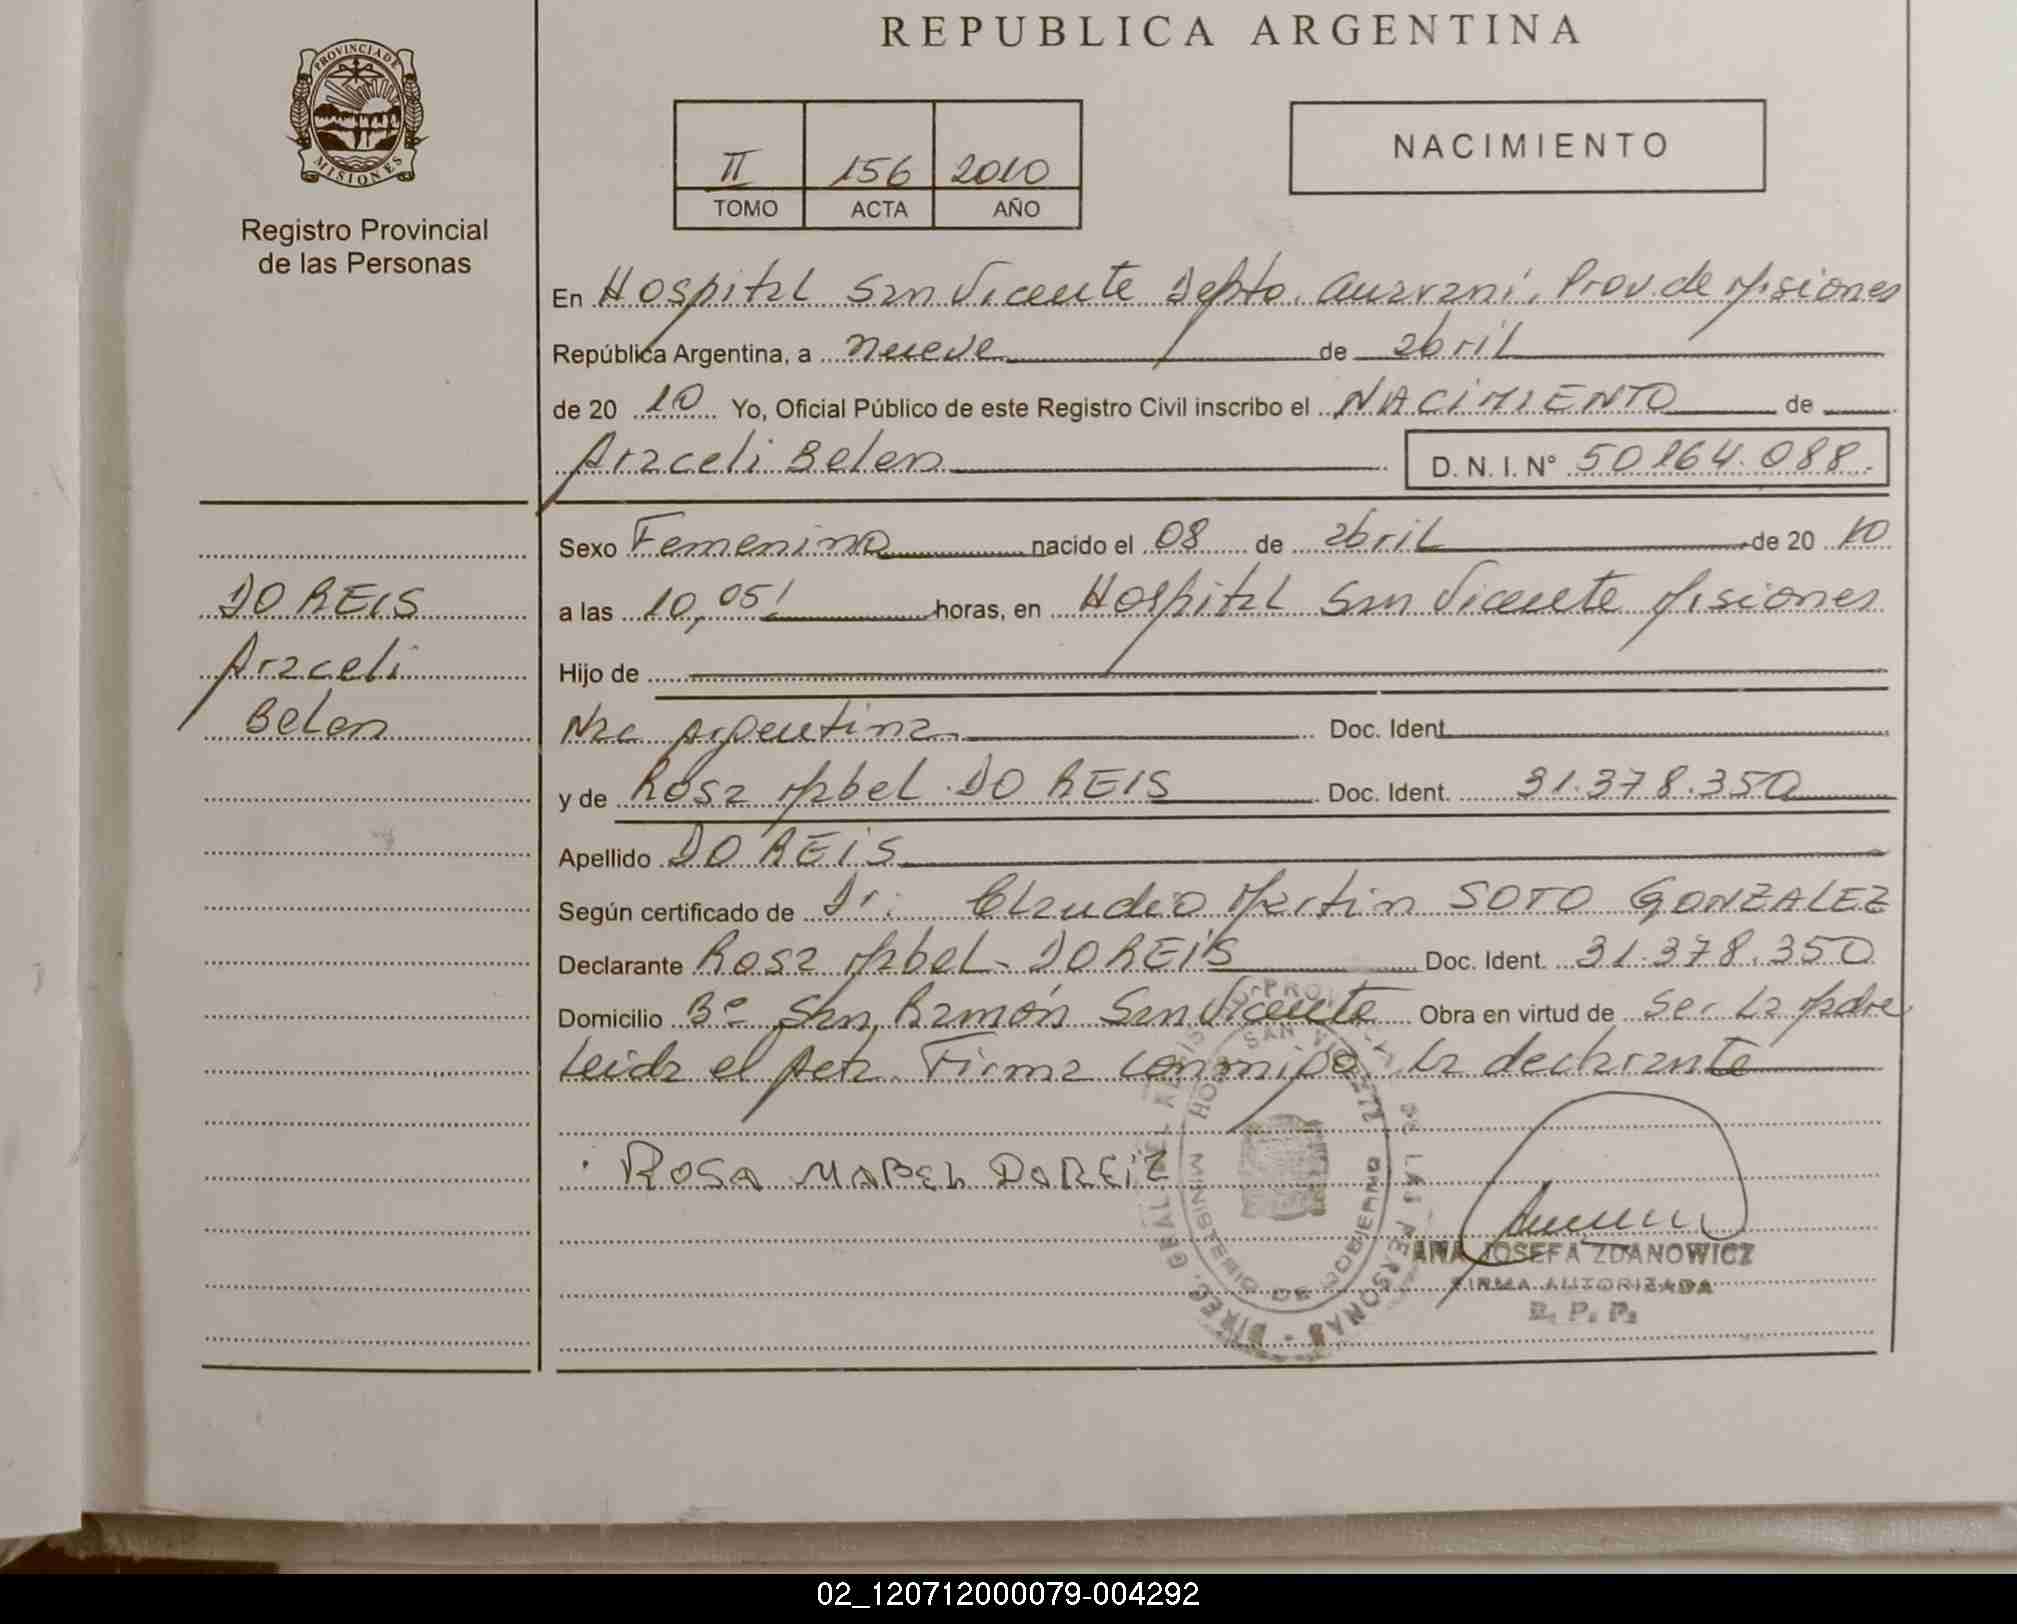 REPUBLICA ARGENTINA
PROVINCIA DE
MISIONES
Registro Provincial
de las Personas
II 156 2010
TOMO ACTA AÑO
NACIMIENTO
En Hospital San Vicente Depto. Guaraní. Prov. de Misiones
República Argentina, a nueve de abril
de 20 10 Yo, Oficial Público de este Registro Civil inscribo el NACIMIENTO de
Araceli Belen D. N. I. N° 50.164.088.
DO REIS
Araceli
Belen
Sexo Femenino nacido el 08 de abril de 20 10
a las 10,05' horas, en Hospital San Vicente Misiones
Hijo de
Nac Argentina Doc. Ident.
y de Rosa Mabel DO REIS Doc. Ident. 31.378.350
Apellido DO REIS
Según certificado de Dr. Claudio Martin SOTO GONZALEZ
Declarante Rosa Mabel DO REIS Doc. Ident. 31.378.350
Domicilio B° San Ramón San Vicente Obra en virtud de Ser La Madre
Leida el Acta Firma conmigo La declarante
ROSA MABEL DOREIZ
HOSP. SAN VICENTE
MINISTERIO DE GOBIERNO
DE LAS PERSONAS
ANA JOSEFA ZDANOWICZ
FIRMA AUTORIZADA
R. P. P.
02_120712000079-004292